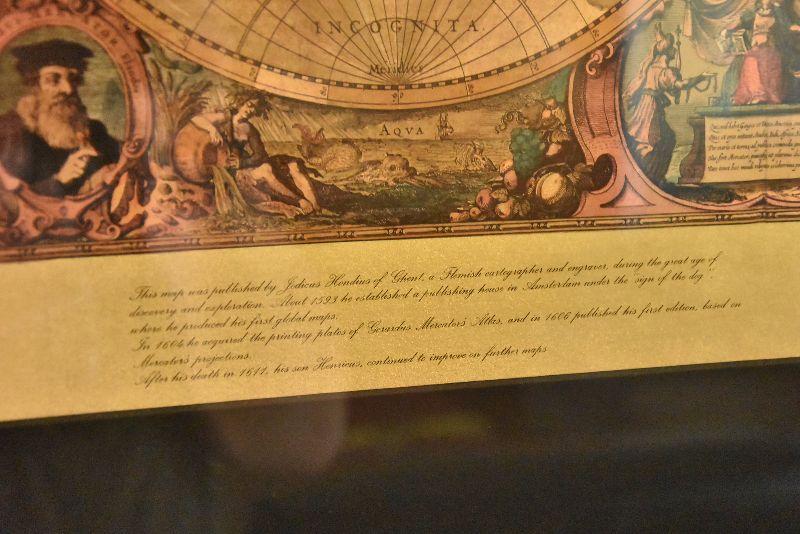 INCOGNITA.
Meridies
AQVA
This map was published by Jodicus Hondius of Ghent, a Flemish cartographer and engraver, during the great age of
discovery and exploration. About 1593 he established a publishing house in Amsterdam under the "sign of the dog"
where he produced his first global maps.
In 1604 he acquired the printing plates of Gerardus Mercator's Atlas, and in 1606 published his first edition, based on
Mercator's projections.
After his death in 1611, his son Henricus, continued to improve on further maps